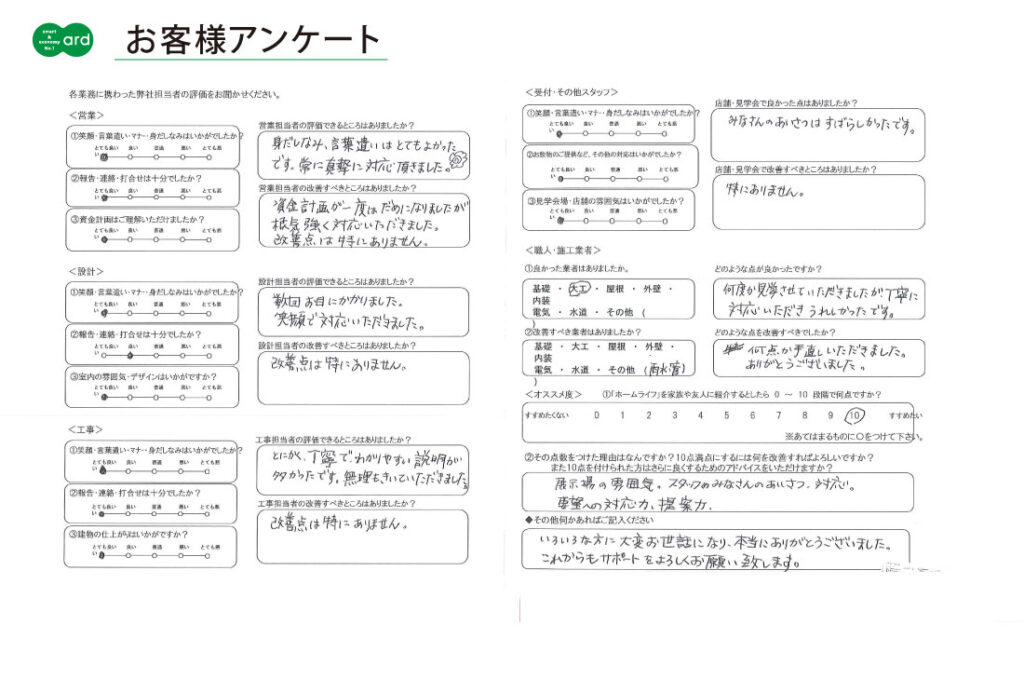 smart
&
economy
No.1
ard
お客様アンケート
各業務に携わった弊社担当者の評価をお聞かせください。
<営業>
①笑顔・言葉遣い・マナー・身だしなみはいかがでしたか?
とても良い 良い 普通 悪い とても悪い
②報告・連絡・打合せは十分でしたか?
とても良い 良い 普通 悪い とても悪い
③資金計画はご理解いただけましたか?
とても良い 良い 普通 悪い とても悪い
営業担当者の評価できるところはありましたか?
身だしなみ、言葉遣いはとてもよかった
です。常に真摯に対応頂きました。
営業担当者の改善すべきところはありましたか?
資金計画が一度はだめになりましたが
根気強く対応いただきました。
改善点は特にありません。
<設計>
①笑顔・言葉遣い・マナー・身だしなみはいかがでしたか?
とても良い 良い 普通 悪い とても悪い
②報告・連絡・打合せは十分でしたか?
とても良い 良い 普通 悪い とても悪い
③室内の雰囲気・デザインはいかがですか?
とても良い 良い 普通 悪い とても悪い
設計担当者の評価できるところはありましたか?
数回お目にかかりました。
笑顔で対応いただきました。
設計担当者の改善すべきところはありましたか?
改善点は特にありません。
<工事>
①笑顔・言葉遣い・マナー・身だしなみはいかがでしたか?
とても良い 良い 普通 悪い とても悪い
②報告・連絡・打合せは十分でしたか?
とても良い 良い 普通 悪い とても悪い
③建物の仕上がりはいかがですか?
とても良い 良い 普通 悪い とても悪い
工事担当者の評価できるところはありましたか?
とにかく、丁寧でわかりやすい説明が
多かったです。無理もきいていただきました。
工事担当者の改善すべきところはありましたか?
改善点は特にありません。
<受付・その他スタッフ>
①笑顔・言葉遣い・マナー・身だしなみはいかがでしたか?
とても良い 良い 普通 悪い とても悪い
②お飲物のご提供など、その他の対応はいかがでしたか?
とても良い 良い 普通 悪い とても悪い
③見学会場・店舗の雰囲気はいかがでしたか?
とても良い 良い 普通 悪い とても悪い
店舗・見学会で良かった点はありましたか?
みなさんのあいさつはすばらしかったです。
店舗・見学会で改善すべきところはありましたか?
特にありません。
<職人・施工業者>
①良かった業者はありましたか。
基礎 ・ 大工 ・ 屋根 ・ 外壁 ・
内装
電気 ・ 水道 ・ その他 (
)
どのような点が良かったですか?
何度か見学させていただきましたが、丁寧に
対応いただきうれしかったです。
②改善すべき業者はありましたか?
基礎 ・ 大工 ・ 屋根 ・ 外壁 ・
内装
電気 ・ 水道 ・ その他 (雨水管)
)
どのような点を改善すべきでしたか?
何点か手直しいただきました。
ありがとうございました。
<オススメ度> ①「ホームライフ」を家族や友人に紹介するとしたら 0 ～ 10 段階で何点ですか?
すすめたくない 0 1 2 3 4 5 6 7 8 9 10 すすめたい
※あてはまるものに○をつけて下さい。
②その点数をつけた理由はなんですか?10点満点にするには何を改善すればよろしいですか?
また10点を付けられた方はさらに良くするためのアドバイスをいただけますか?
展示場の雰囲気。スタッフのみなさんのあいさつ、対応。
要望への対応力、提案力.
◆その他何かあればご記入ください
いろいろな方に大変お世話になり、本当にありがとうございました。
これからもサポートをよろしくお願い致します。